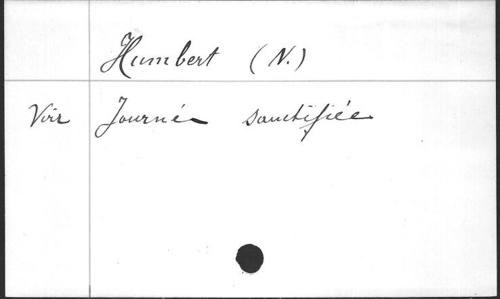 Humbert (N.)
Voir Journée sanctifiée